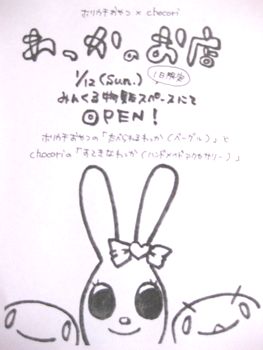 ホリカチおやつ × chocori
わっかのお店
1/12 (Sun.) 1日限定
みんくる物販スペースにて
OPEN!
ホリカチおやつの「たべられるわっか(ベーグル)」と
chocoriの「すてきなわっか(ハンドメイドアクセサリー)」